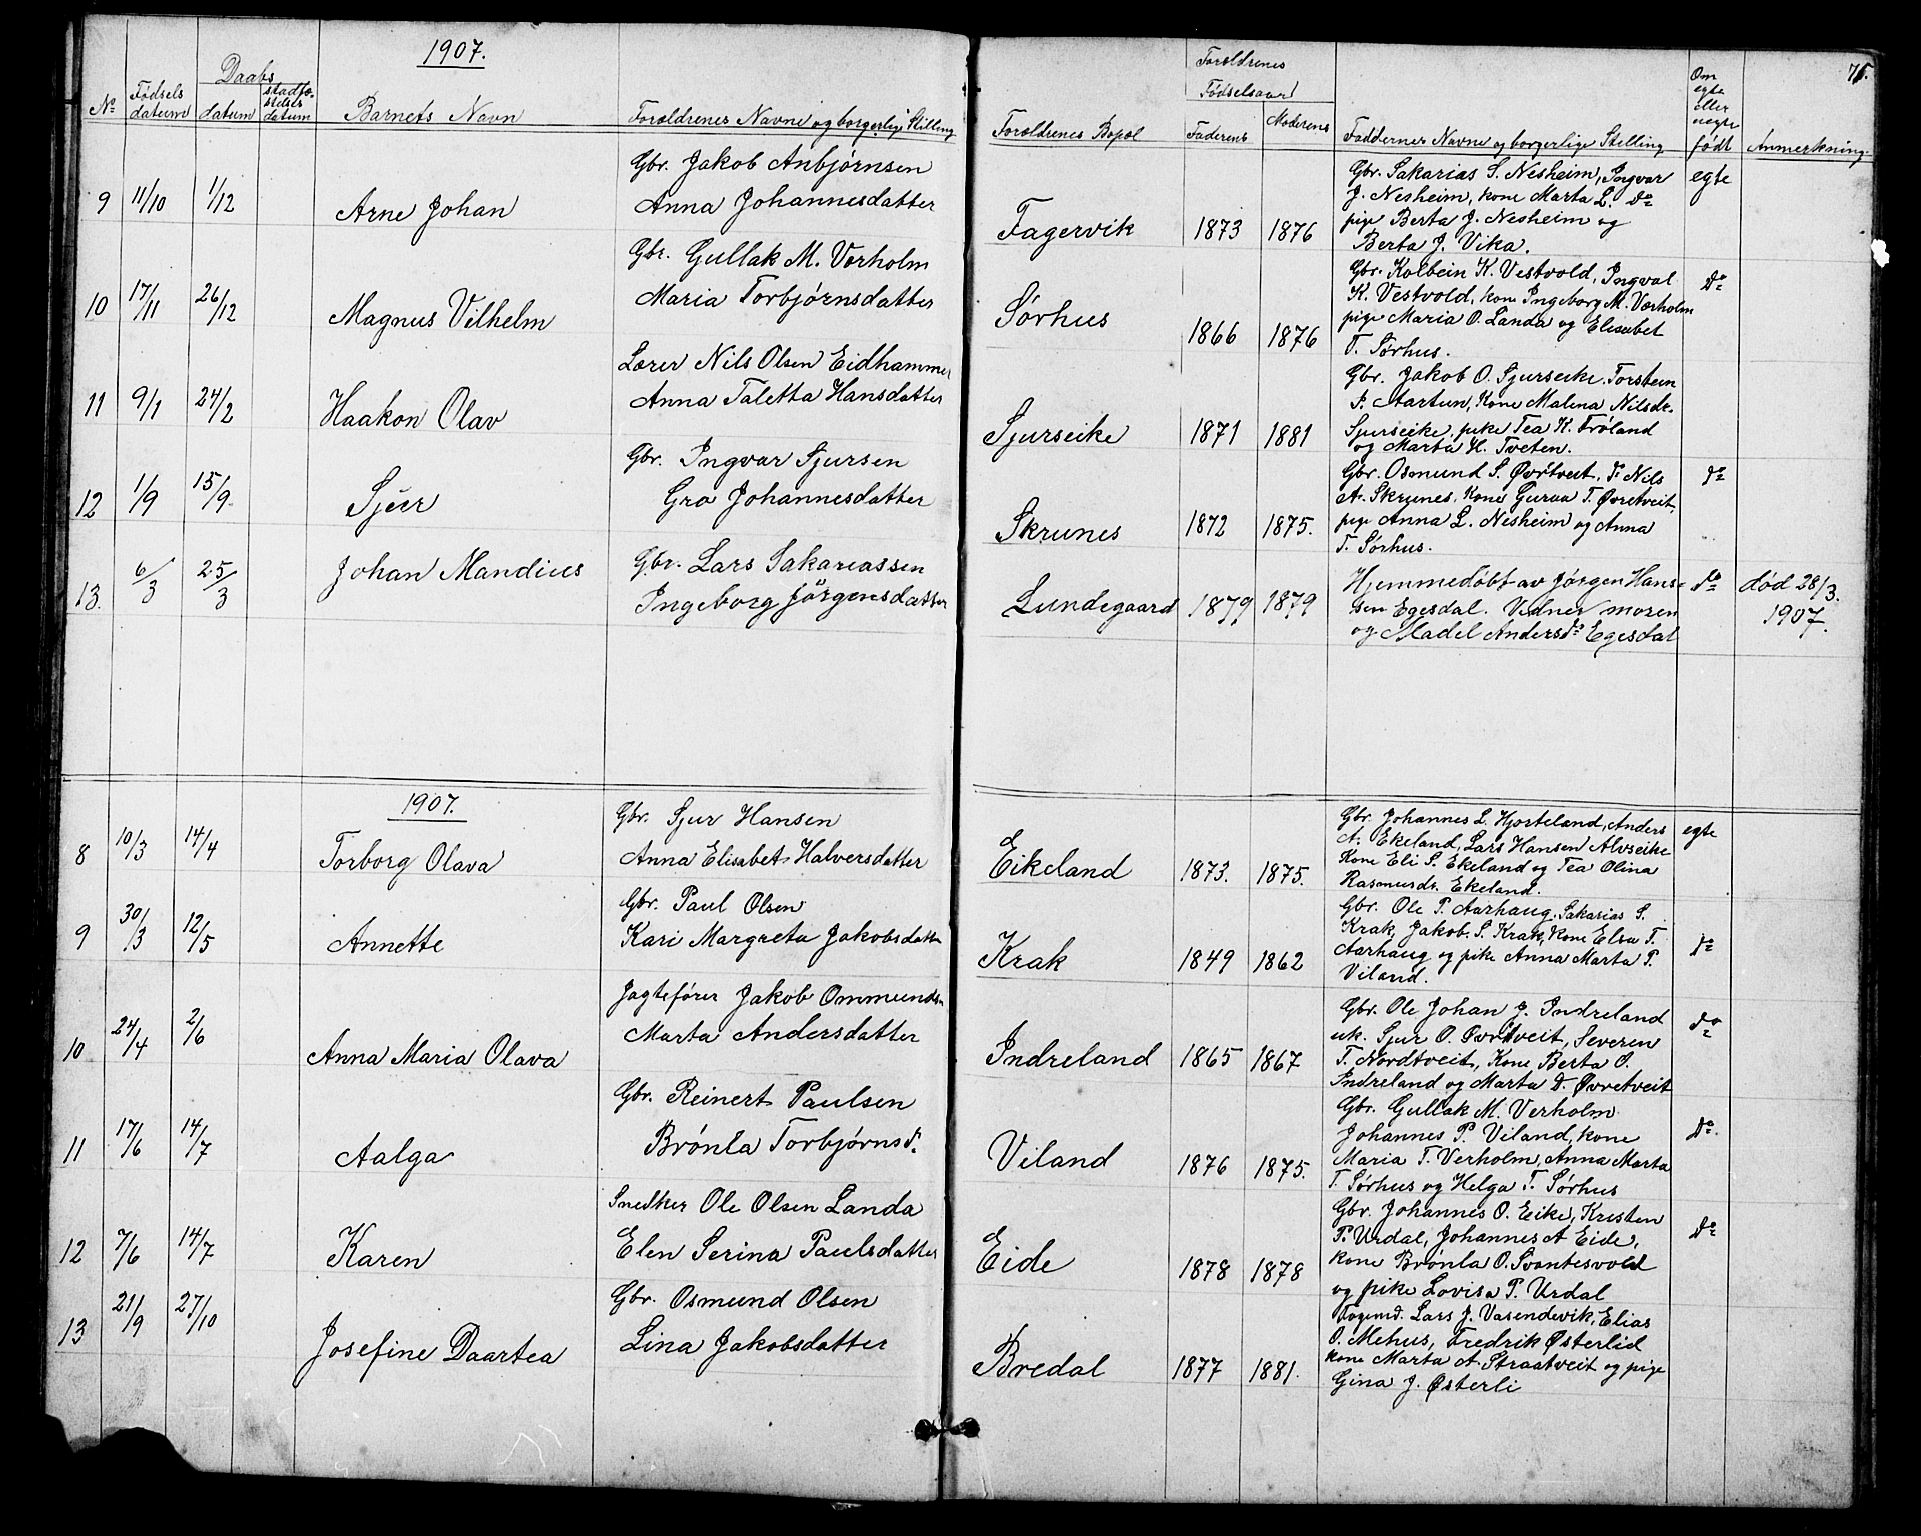 1907.
75.
Nº
Fødsels datum
Daabs datum
stadfæstelses datum
Barnets Navn
Forældrenes Navne og borgerlige Stilling
Forældrenes Bopæl
Forældrenes Fødselsaar
Faderens
Moderens
Faddernes Navne og borgerlige Stilling
Om egte eller uegte født
Anmerkning.
9 11/10 1/12 Arne Johan
Gbr. Jakob Anbjørnsen
Anna Johannesdatter
Fagervik 1873 1876
Gbr. Sakarias S. Nesheim, Ingvar
J. Nesheim, kone Marta L. do
pige Berta J. Nesheim og
Berta J. Vika.
egte
10 17/11 26/12 Magnus Vilhelm
Gbr. Gullak M. Verholm
Maria Torbjørnsdatter
Sørhus 1866 1876
Gbr. Kolbein K. Vestvold, Ingval
K. Vestvold, kone Ingeborg M. Værholm
pige Maria O. Landa og Elisabet
T. Sørhus.
do
11 9/1 24/2 Haakon Olav
Lærer Nils Olsen Eidhammer
Anna Taletta Hansdatter
Sjurseike 1871 1881
Gbr. Jakob O. Sjurseike, Torstein
P. Aartun, Kone Malena Nilsdr.
Sjurseike, pike Tea K. Frøland
og Marta H. Tveten.
12 1/9 15/9 Sjur
Gbr. Ingvar Sjursen
Gro Johannesdatter
Skrunes 1872 1875.
Gbr. Osmund S. Øvrtveit, do Nils
A. Skrunes, Kone Guroa T. Øvretveit,
pige Anna L. Nesheim og Anna
T. Sørhus.
do
13. 6/3 25/3 Johan Mandius
Gbr. Lars Sakariassen
Ingeborg Jørgensdatter
Lundegaard 1879 1879
Hjemmedøbt av Jørgen Han-
sen Egesdal. Vidner moren
og Madel Andersdr Egesdal
do
død 28/3.
1907.
1907.
8 10/3 14/4 Torborg Olava
Gbr. Sjur Hansen
Anna Elisabet Halversdatter
Eikeland 1873. 1875.
Gbr. Johannes L. Hjorteland, Anders
A. Ekeland, Lars Hansen Alvseike
Kone Eli S. Ekeland og Tea Olina
Rasmusdr. Ekeland.
egte
9 30/3 12/5 Annette
Gbr. Paul Olsen
Kari Margreta Jakobsdatter
Krak 1849 1862
Gbr. Ole P. Aarhaug, Sakarias S.
Krak, Jakob. S. Krak, kone Elsa T.
Aarhaug og pike Anna Marta P.
Viland.
do
10 24/4 2/6 Anna Maria Olava
Jagtefører Jakob Ommunds.
Marta Andersdatter
Indreland 1865 1867
Gbr. Ole Johan J. Indreland
uk. Sjur O. Øvrtveit, Severen
T. Nordtveit, Kone Berta O.
Indreland og Marta D. Øvretveit
do
11 17/6 14/7 Aalga
Gbr. Reinert Paulsen
Brønla Torbjørnsd.
Viland 1876 1875.
Gbr. Gullak M. Verholm
Johannes P. Viland, kone
Maria T. Verholm, Anna Marta
T. Sørhus og Helga T. Sørhus
do.
12 7/6 14/7 Karen
Snedker Ole Olsen Landa
Elen Serina Paulsdatter
Eide 1878 1878
Gbr. Johannes O. Eike, Kristen
P. Urdal, Johannes A Eide,
kone Brønla O. Svantesvold
og pike Lovisa P. Urdal
do
13 21/9 27/10 Josefine Daartea
Gbr. Osmund Olsen
Lina Jakobsdatter
Bredal 1877 1881.
Lars J. Vasendevik, Elias
O. Mehus, Fredrik Østerlid
kone Marta A Straatveit og pige
Gina J. Østerli